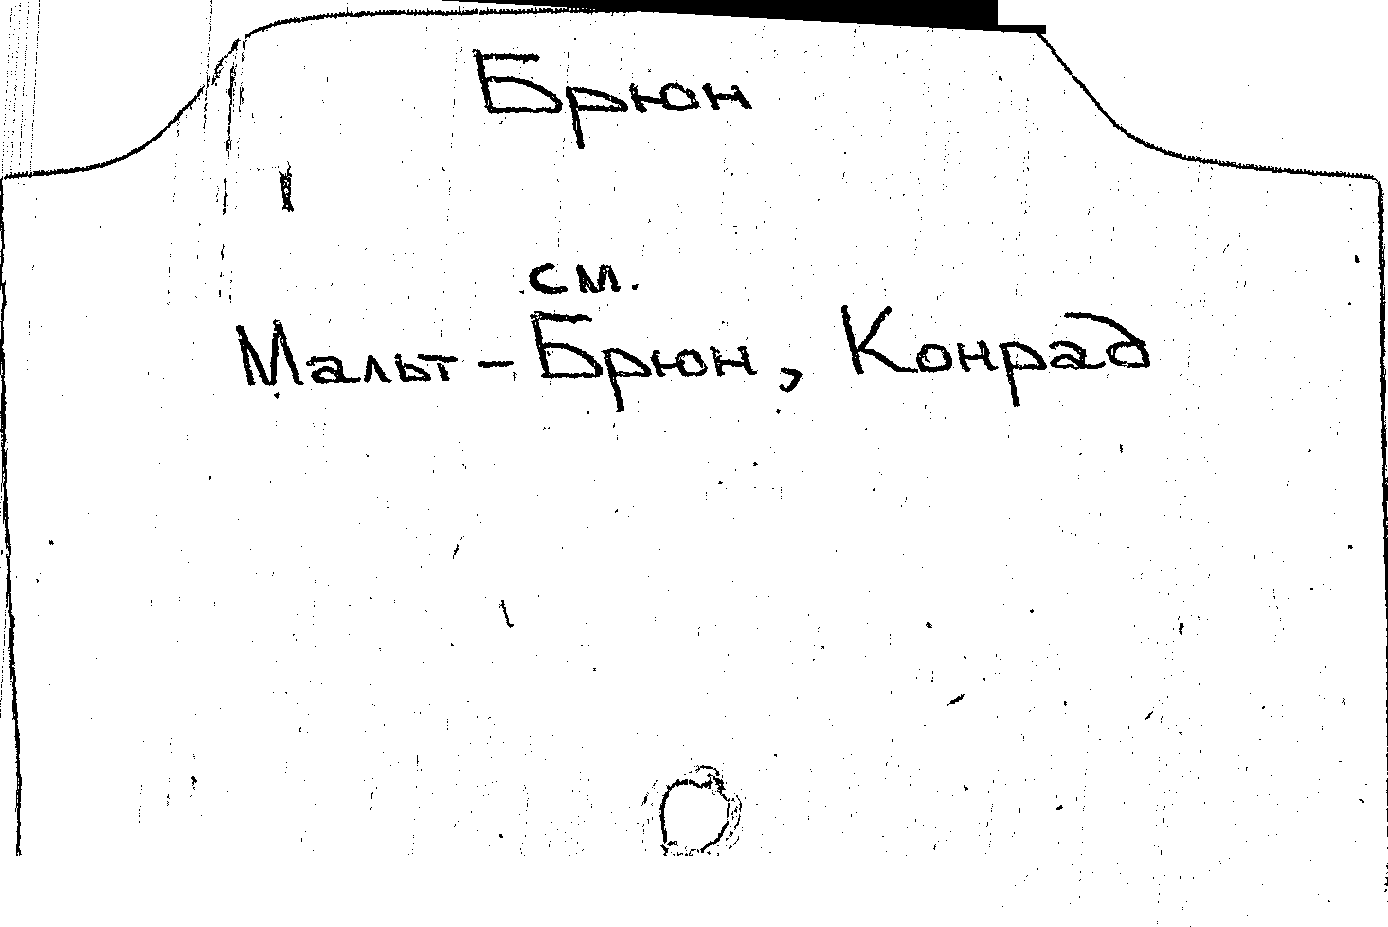 Брюн
см.
Мальт-Брюн, Конрад